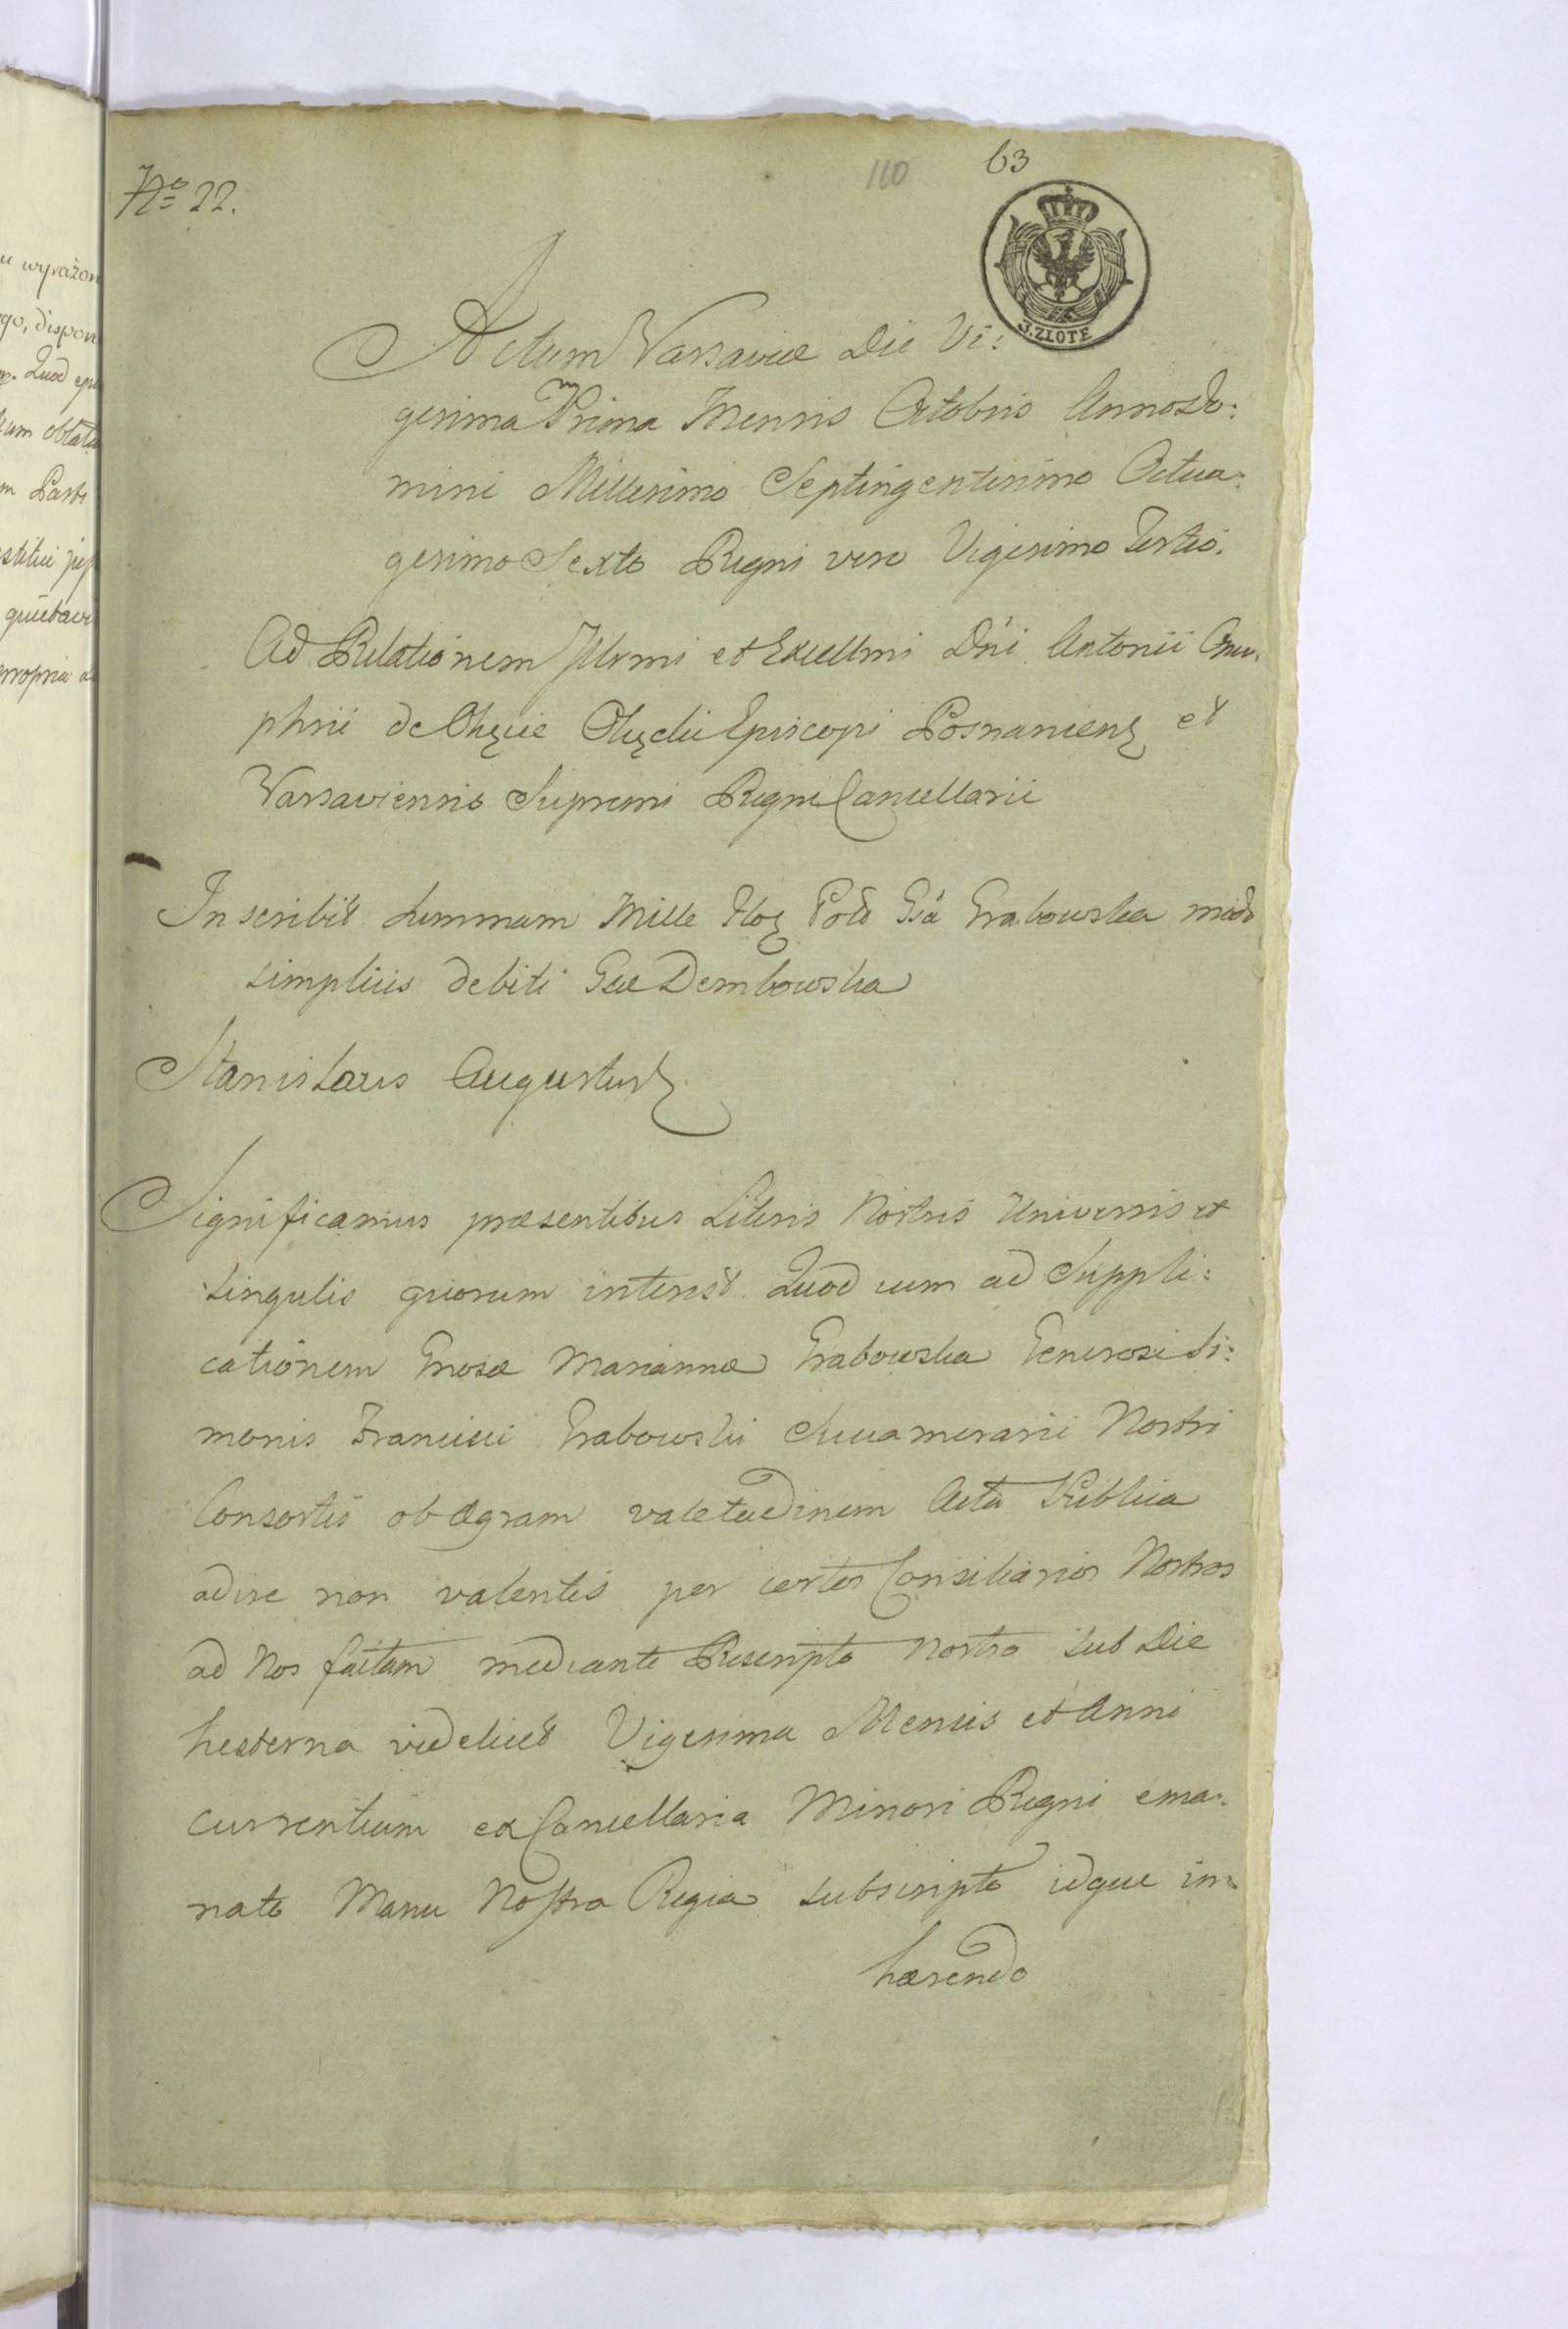 No 22.
110
63
3. ZŁOTE
Actum Varsaviæ Die Vi:
gesima Prima Mensis Octobris Anno Do:
mini Millesimo Septingentesimo Octua:
gesimo Sexto Regni vero Vigesimo Tertio.
Ad Relationem Illrmi et Excellmi Dni Antonii Onu:
phrii de Okęcie Okęcki Episcopi Posnaniens et
Varsaviensis Supremi Regni Cancellarii
Inscribit Summam Mille Flor Pold Gsa Grabowska modo
simplicis debiti Gae Dembowska
Stanislaus Augustus
Significamus præsentibus Literis Nostris Universis et
Singulis quorum interest Quod cum ad Suppli:
cationem Gnosæ Mariannæ Grabowska Generosi Si:
monis Francisci Grabowski Succamerarii Nostri
Consortis ob ægram valetudinem Acta Publica
adire non valentis per certos Consiliarios Nostros
ad Nos factam mediante Rescripto Nostro sub Die
hesterna videlicet Vigesima Mensis et Anni
currentium ex Cancellaria Minori Regni ema:
nato Manu Nostra Regia subscripto idque in:
hærendo
u wyrażon
go, dispon
Quod
um oblat
m Parte
stitui
quietavi
propria